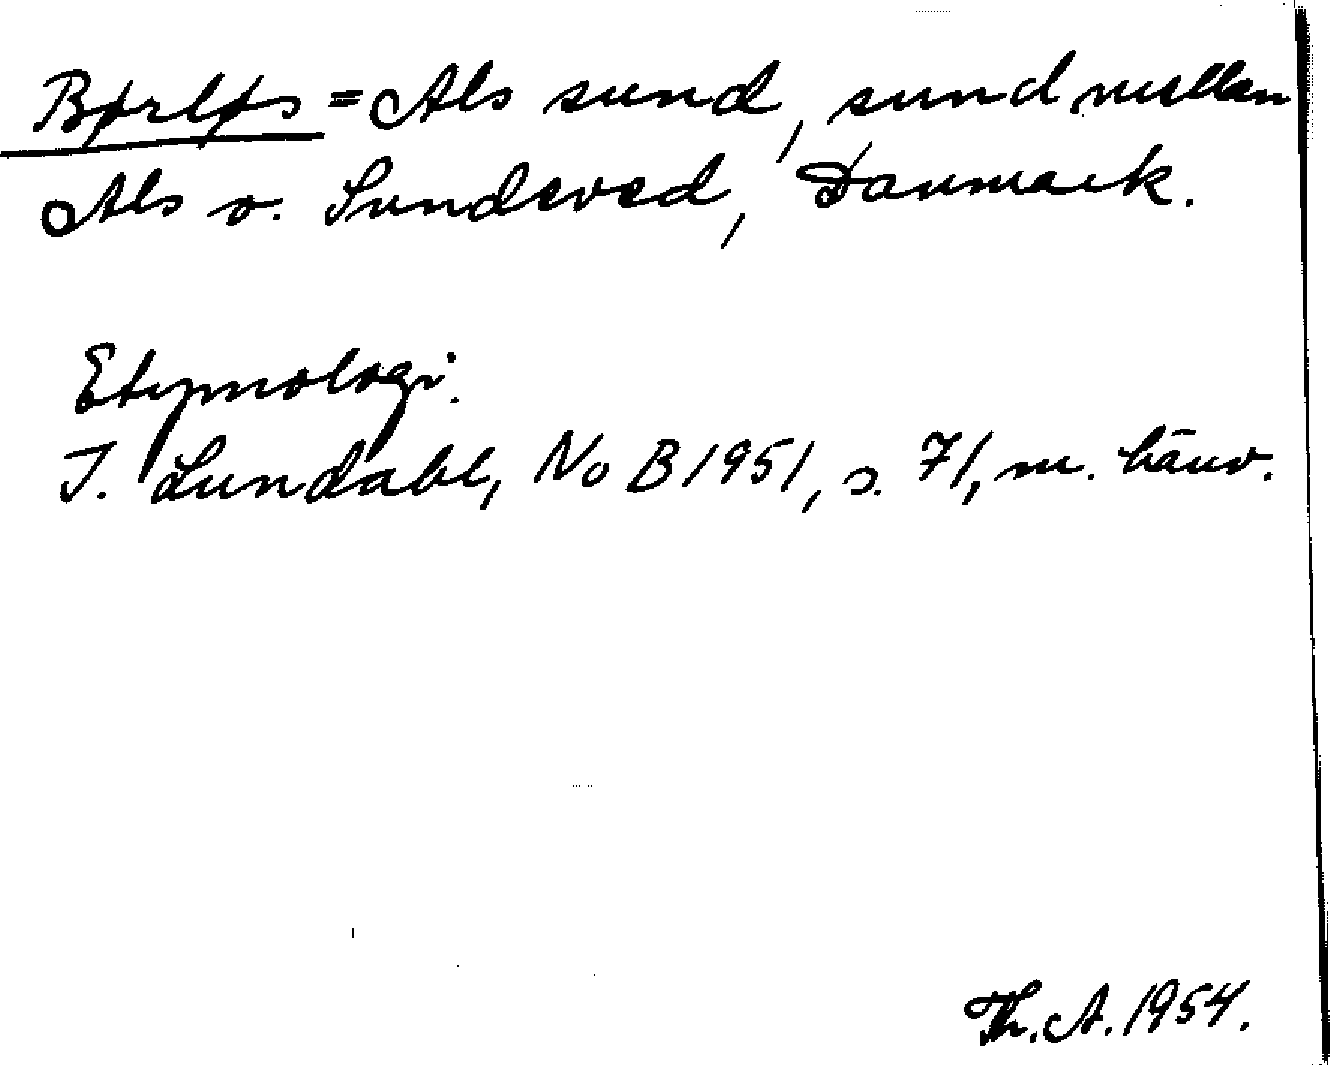 Børløs = Als sund, sund mellan
Als o. Sundeved, Danmark.
Etymologi.
I. Lundahl, NoB 1951, s. 71, m. hänv.
Th. A. 1954.